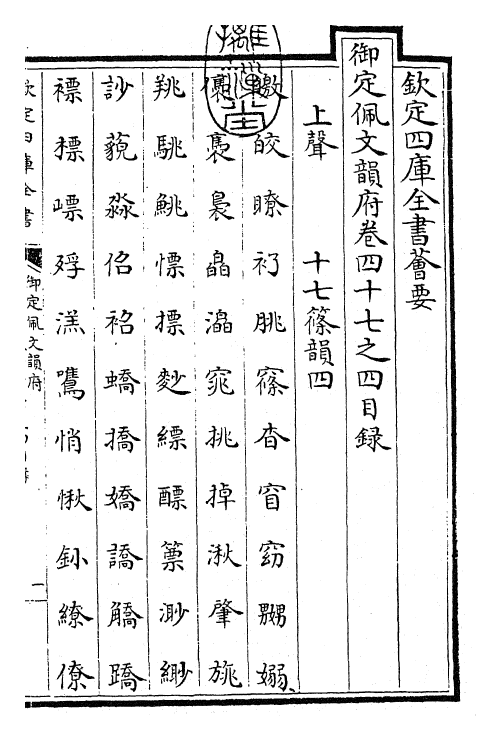 欽定四庫全書薈要
御定佩文韻府卷四十七之四目録
上聲 十七篠韻四
皎瞭礿朓窱杳窅窈嬲嫋
褭裊皛灟窕挑掉湫肇旐
羜駣鮡慓摽麨縹醥篻渺緲
訬藐淼佋袑蟜撟嬌譑觼蹻
褾標嶛殍漾鷕悄愀釥繚僚
欽定四庫全書
御定佩文韻府